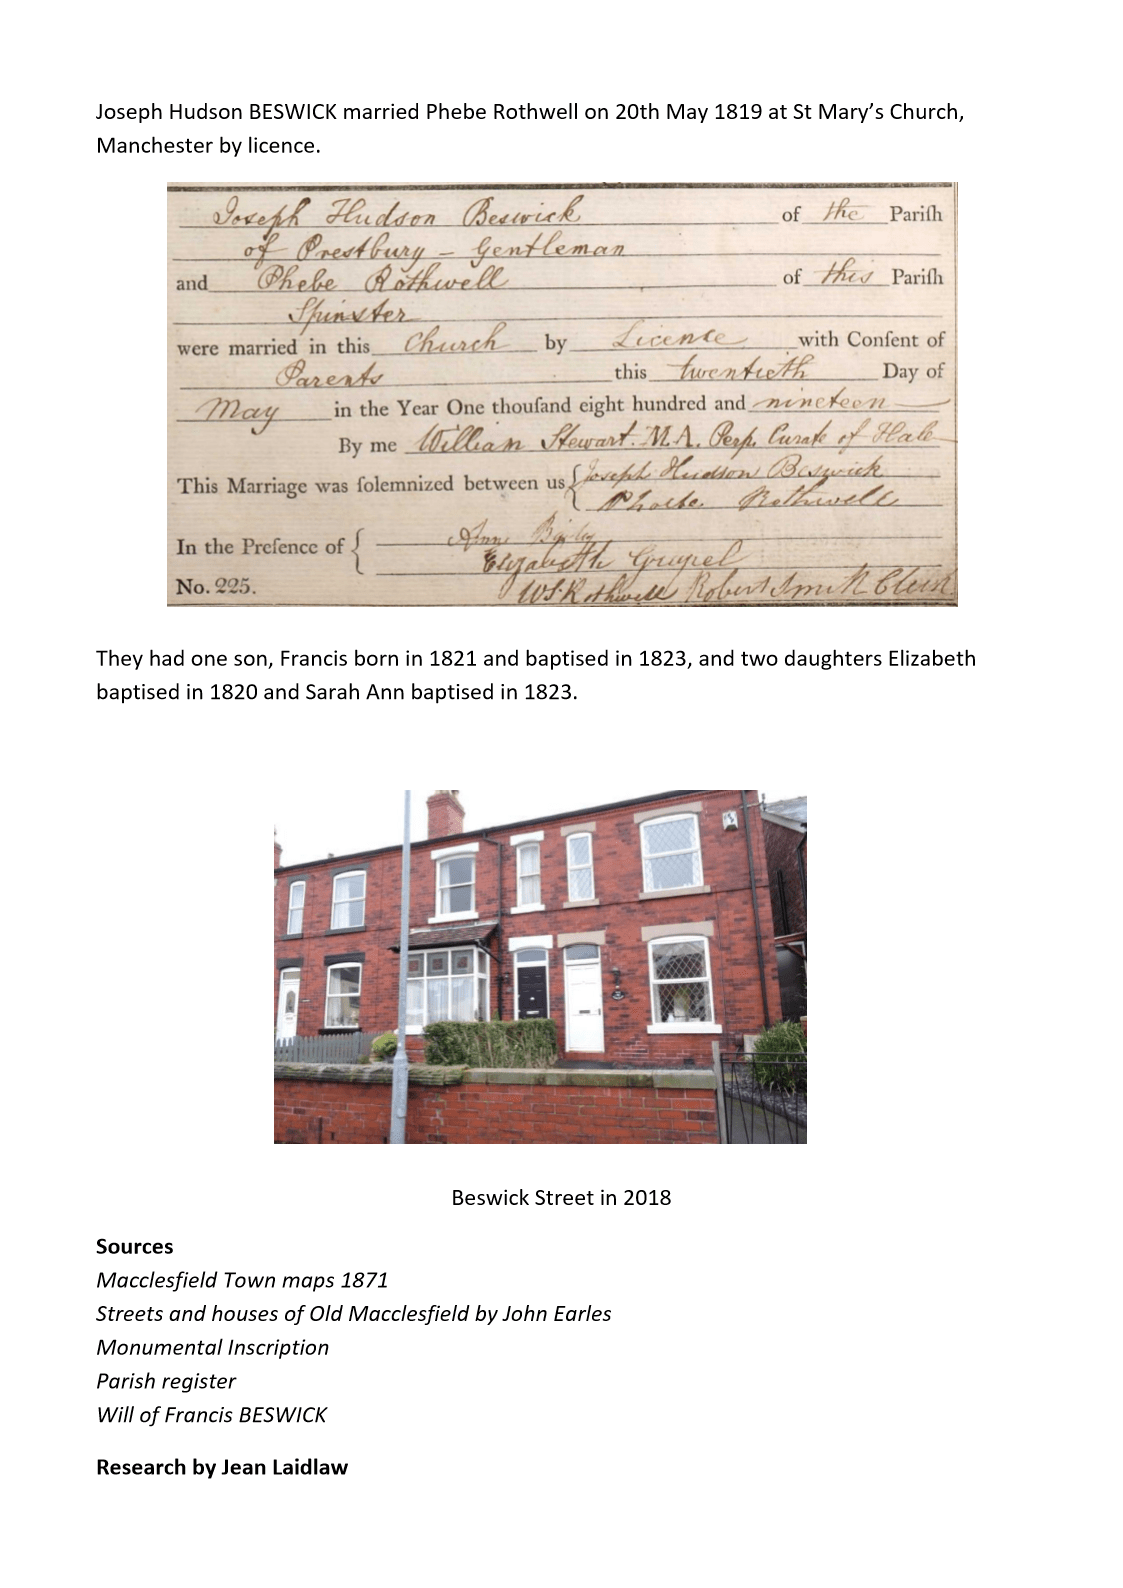 Joseph Hudson BESWICK married Phebe Rothwell on 20th May 1819 at St Mary’s Church,
Manchester by licence.
Joseph Hudson Beswick of the Pariſh
of Prestbury – Gentleman
and Phebe Rothwell of this Pariſh
Spinster
were married in this Church by Licence with Conſent of
Parents this twentieth Day of
May in the Year One thouſand eight hundred and nineteen
By me William Stewart. M.A. Perp. Curate of Hale
This Marriage was ſolemnized between us { Joseph Hudson Beswick
Phoebe Rothwell
In the Preſence of { Anne
Elizabeth
No. 225. W.S. Rothwell Robert Smith Clerk
They had one son, Francis born in 1821 and baptised in 1823, and two daughters Elizabeth
baptised in 1820 and Sarah Ann baptised in 1823.
Beswick Street in 2018
Sources
Macclesfield Town maps 1871
Streets and houses of Old Macclesfield by John Earles
Monumental Inscription
Parish register
Will of Francis BESWICK
Research by Jean Laidlaw